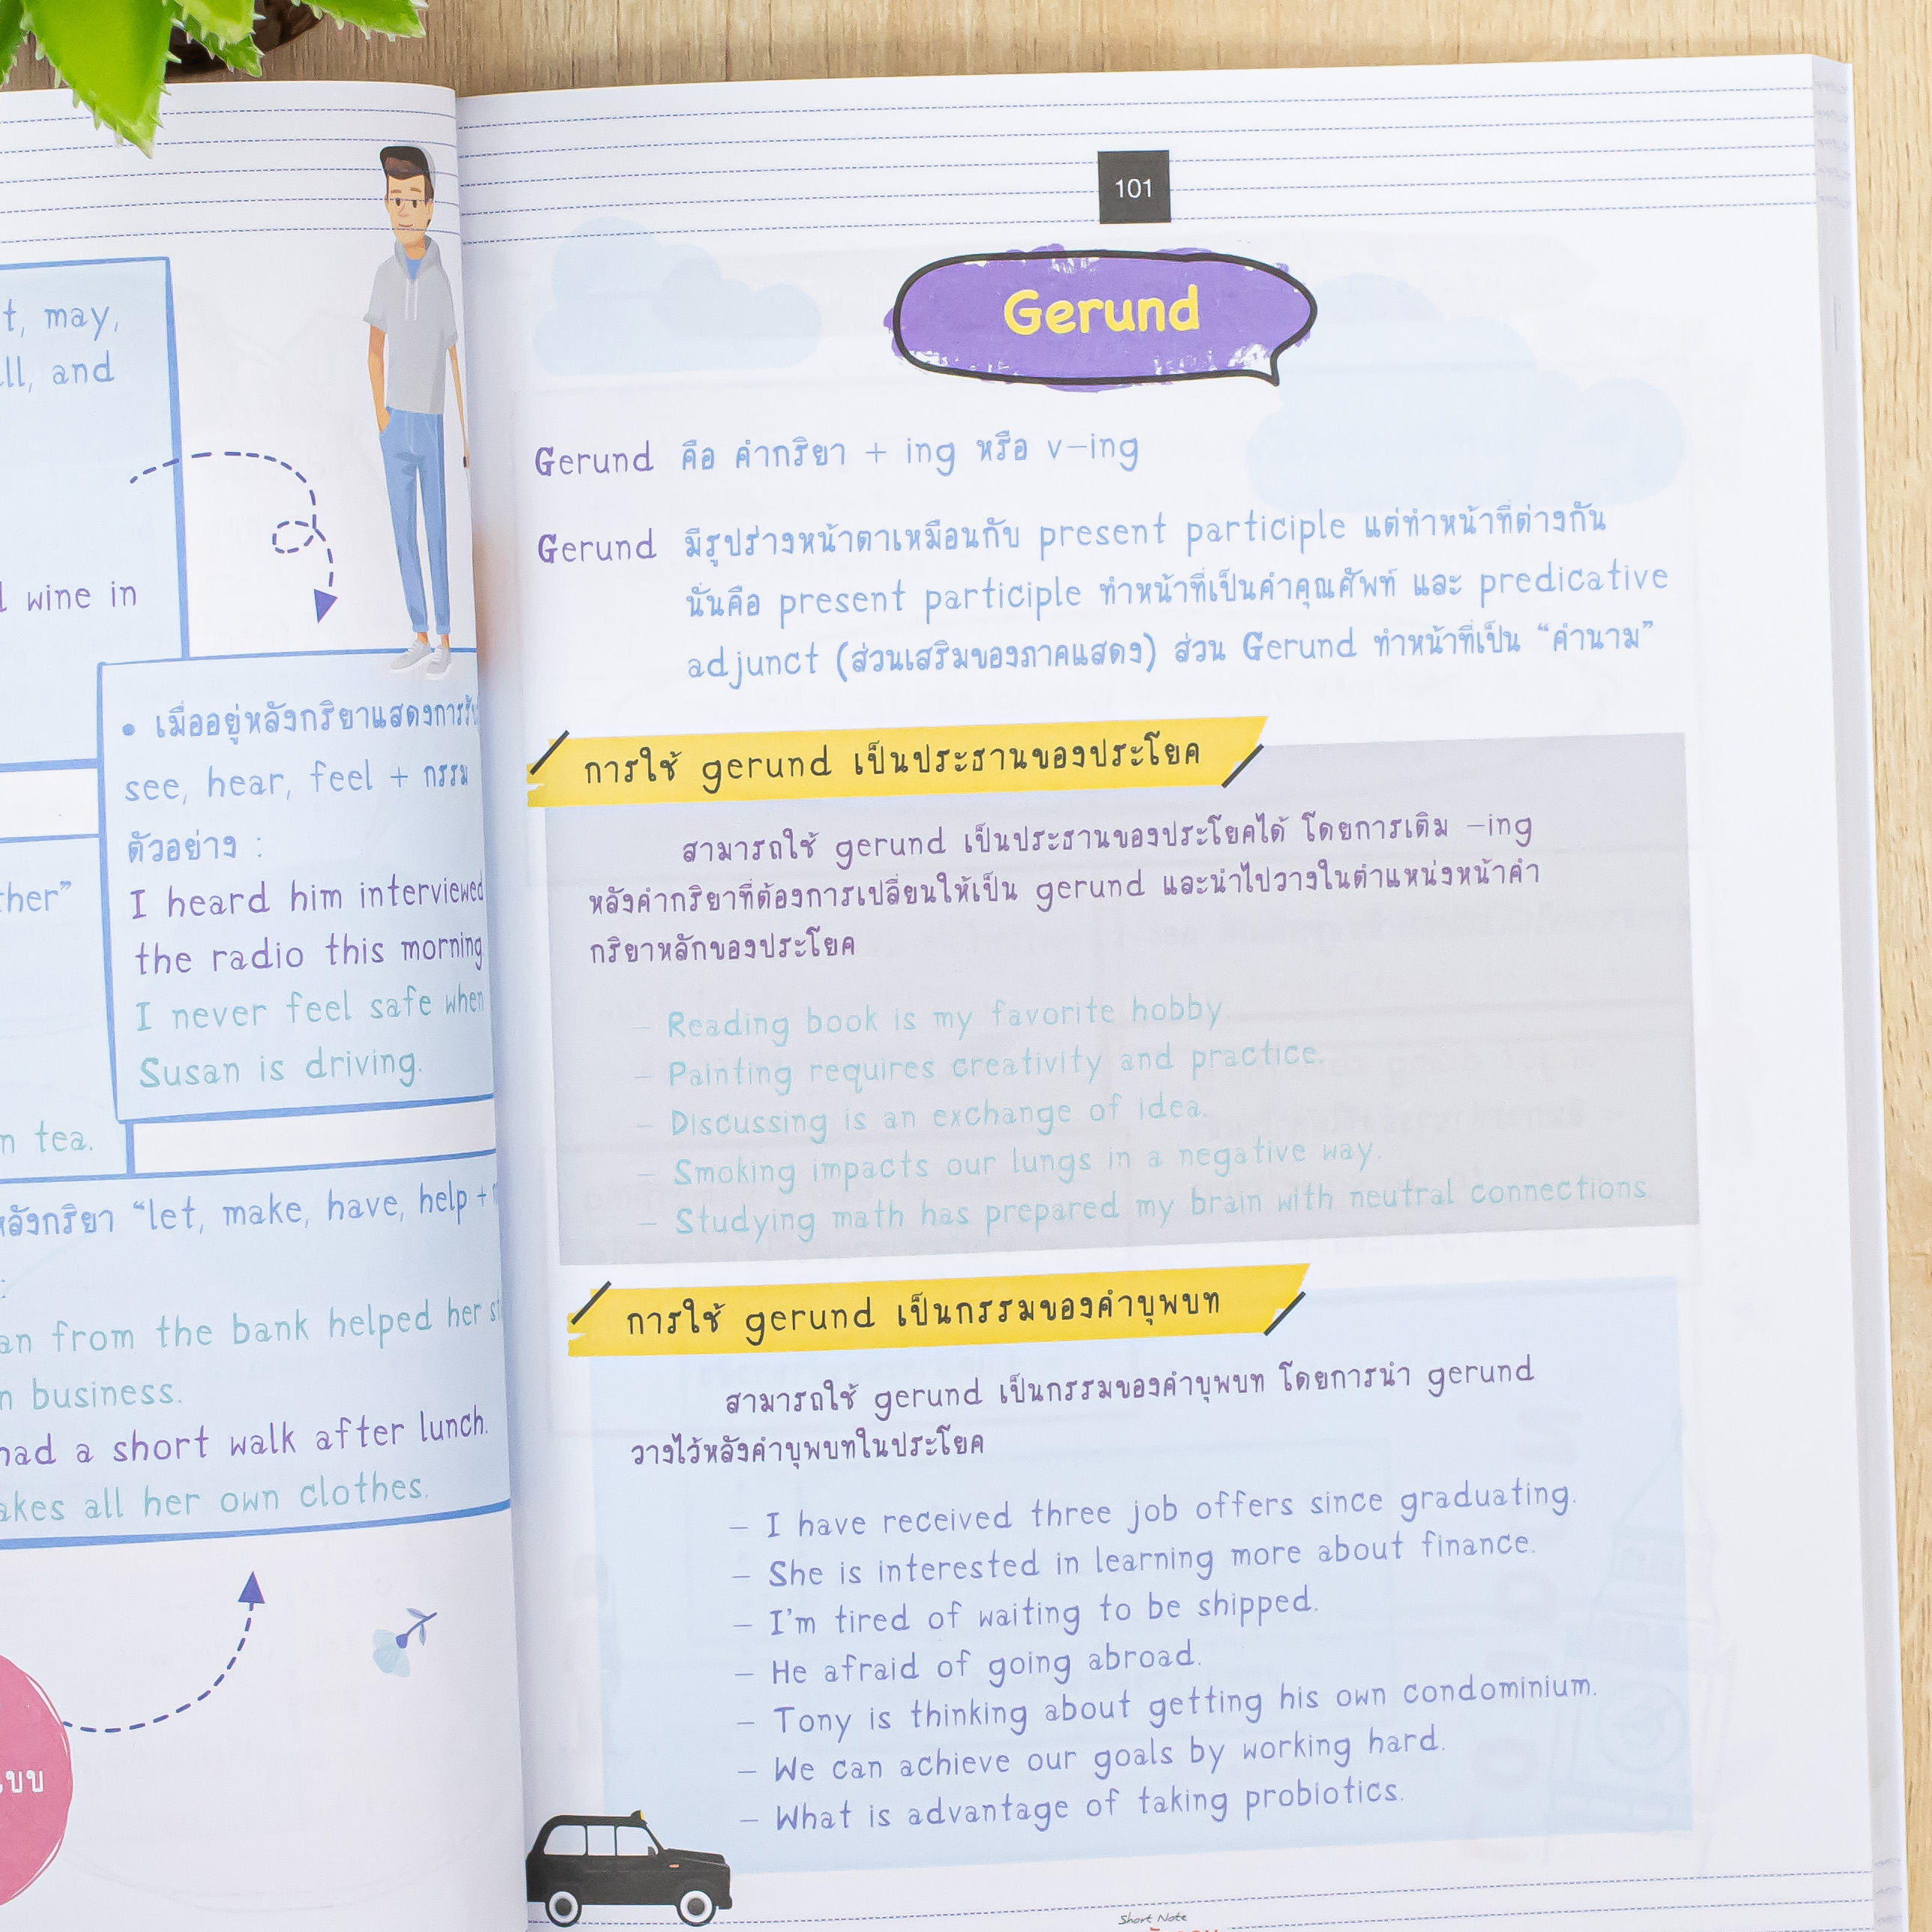 t, may,
ll, and
wine in
• เมื่ออยู่หลังกริยาแสดงการรับ
see, hear, feel + กรรม
ตัวอย่าง :
ther”
I heard him interviewed
the radio this morning
I never feel safe when
Susan is driving.
n tea.
หลังกริยา “let, make, have, help +
an from the bank helped her
n business.
had a short walk after lunch.
akes all her own clothes.
แบบ
101
Gerund
Gerund คือ คำกริยา + ing หรือ v-ing
Gerund มีรูปร่างหน้าตาเหมือนกับ present participle แต่ทำหน้าที่ต่างกัน
นั่นคือ present participle ทำหน้าที่เป็นคำคุณศัพท์ และ predicative
adjunct (ส่วนเสริมของภาคแสดง) ส่วน Gerund ทำหน้าที่เป็น “คำนาม”
การใช้ gerund เป็นประธานของประโยค
สามารถใช้ gerund เป็นประธานของประโยคได้ โดยการเติม -ing
หลังคำกริยาที่ต้องการเปลี่ยนให้เป็น gerund และนำไปวางในตำแหน่งหน้าคำ
กริยาหลักของประโยค
- Reading book is my favorite hobby.
- Painting requires creativity and practice.
- Discussing is an exchange of idea.
- Smoking impacts our lungs in a negative way.
- Studying math has prepared my brain with neutral connections.
การใช้ gerund เป็นกรรมของคำบุพบท
สามารถใช้ gerund เป็นกรรมของคำบุพบท โดยการนำ gerund
วางไว้หลังคำบุพบทในประโยค
- I have received three job offers since graduating.
- She is interested in learning more about finance.
- I'm tired of waiting to be shipped.
- He afraid of going abroad.
- Tony is thinking about getting his own condominium.
- We can achieve our goals by working hard.
- What is advantage of taking probiotics.
Short Note